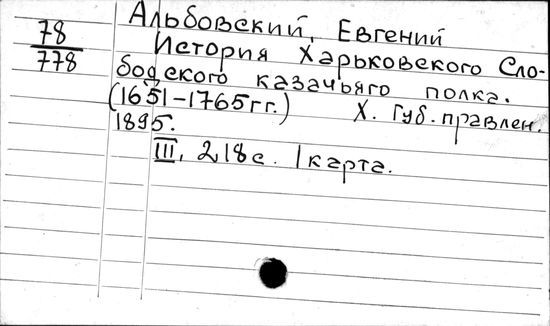 Альбовский, Евгений
78
История Харьковского Сло-
778
бодского казачьяго полка.
(1651-1765гг.) Х. Губ. правлен.
1895.
III, 218с. 1 карта.